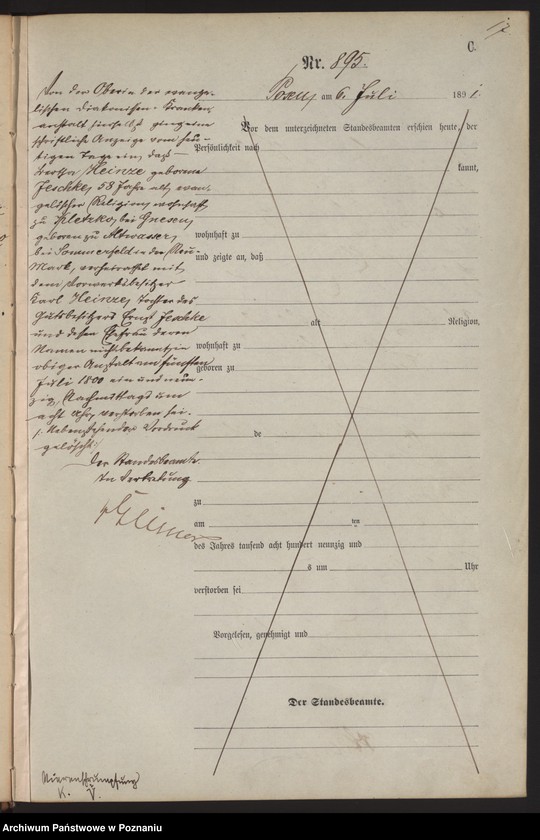 C.
Nr. 895.
Posen, am 6. Juli 1891.
Von der Oberin der evange-
lischen Diakonissen-Kranken
anstalt hierselbst ging eine
schriftliche Anzeige vom heu-
tigen Tage ein, daß
Heinze geborene
Jeschke, 58 Jahre alt, evan-
gelischer Religion, wohnhaft
zu Kletzko, bei Gnesen,
geboren zu Altwasser,
bei Sommerfeld in der Neu-
Mark, verheirathet mit
dem Vorwerksbesitzer
Karl Heinze, Tochter des
Gutsbesitzers Ernst Jeschke
und dessen Ehefrau deren
Namen nicht bekannt, in
obiger Anstalt am fünften
Juli 1800 ein und neun-
zig, Nachmittags um
acht Uhr, verstorben sei.
Nebenstehender Vordruck
gelöscht.
Der Standesbeamte.
In Vertretung
Vor dem unterzeichneten Standesbeamten erschien heute, der
Persönlichkeit nach
kannt,
wohnhaft zu
und zeigte an, daß
alt Religion,
wohnhaft zu
geboren zu
de
zu
am ten
des Jahres tausend acht hundert neunzig und
s um Uhr
verstorben sei
Vorgelesen, genehmigt und
Der Standesbeamte.
Nierenschrumpfung
K. V.
Archiwum Państwowe w Poznaniu